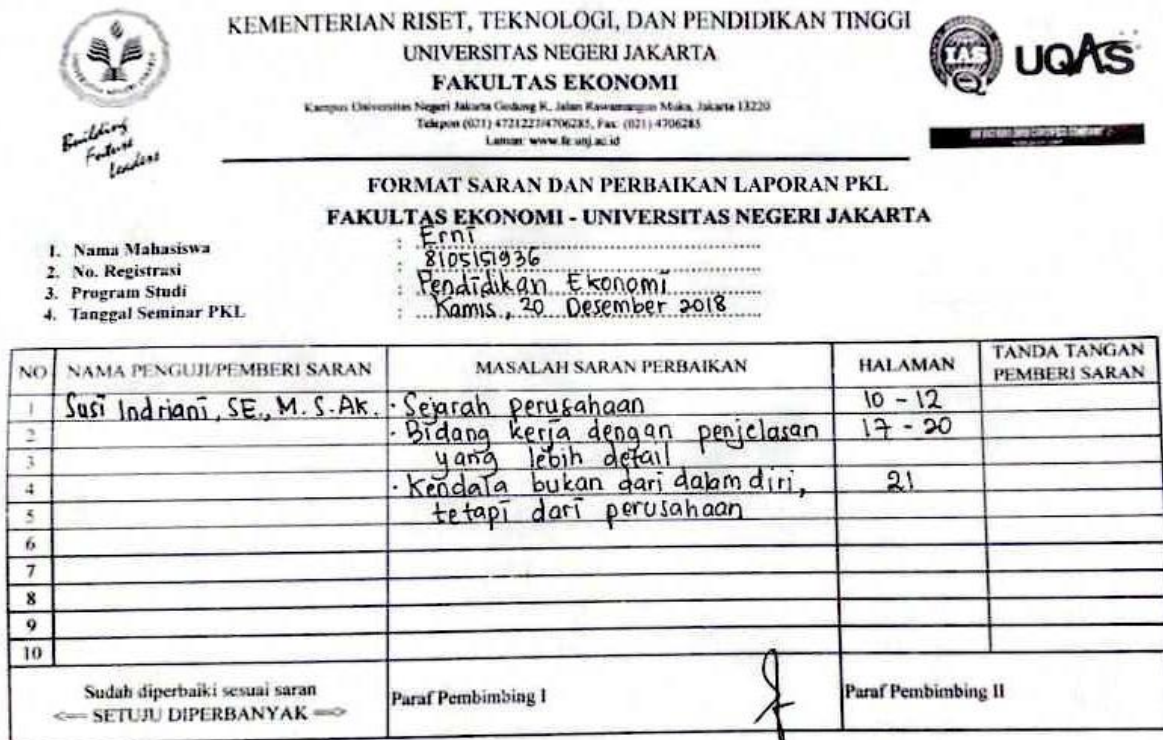 KEMENTERIAN RISET, TEKNOLOGI, DAN PENDIDIKAN TINGGI
UNIVERSITAS NEGERI JAKARTA
FAKULTAS EKONOMI
Kampus Universitas Negeri Jakarta Gedung R, Jalan Rawamangun Muka, Jakarta 13220
Telepon (021) 4721227/4706285, Fax: (021) 4706285
Laman: www.fe.unj.ac.id
Building
Future
Leaders
IAS
UQAS
FORMAT SARAN DAN PERBAIKAN LAPORAN PKL
FAKULTAS EKONOMI - UNIVERSITAS NEGERI JAKARTA
1. Nama Mahasiswa : Erni
2. No. Registrasi : 8105151936
3. Program Studi : Pendidikan Ekonomi
4. Tanggal Seminar PKL : Kamis, 20 Desember 2018
NO NAMA PENGUJI/PEMBERI SARAN MASALAH SARAN PERBAIKAN HALAMAN TANDA TANGAN PEMBERI SARAN
1 Susi Indriani, SE., M.S.Ak. · Sejarah perusahaan 10 - 12
2 · Bidang kerja dengan penjelasan 17 - 20
3 yang lebih detail
4 · Kendala bukan dari dalam diri, 21
5 tetapi dari perusahaan
6
7
8
9
10
Sudah diperbaiki sesuai saran
<== SETUJU DIPERBANYAK ==>
Paraf Pembimbing I
Paraf Pembimbing II